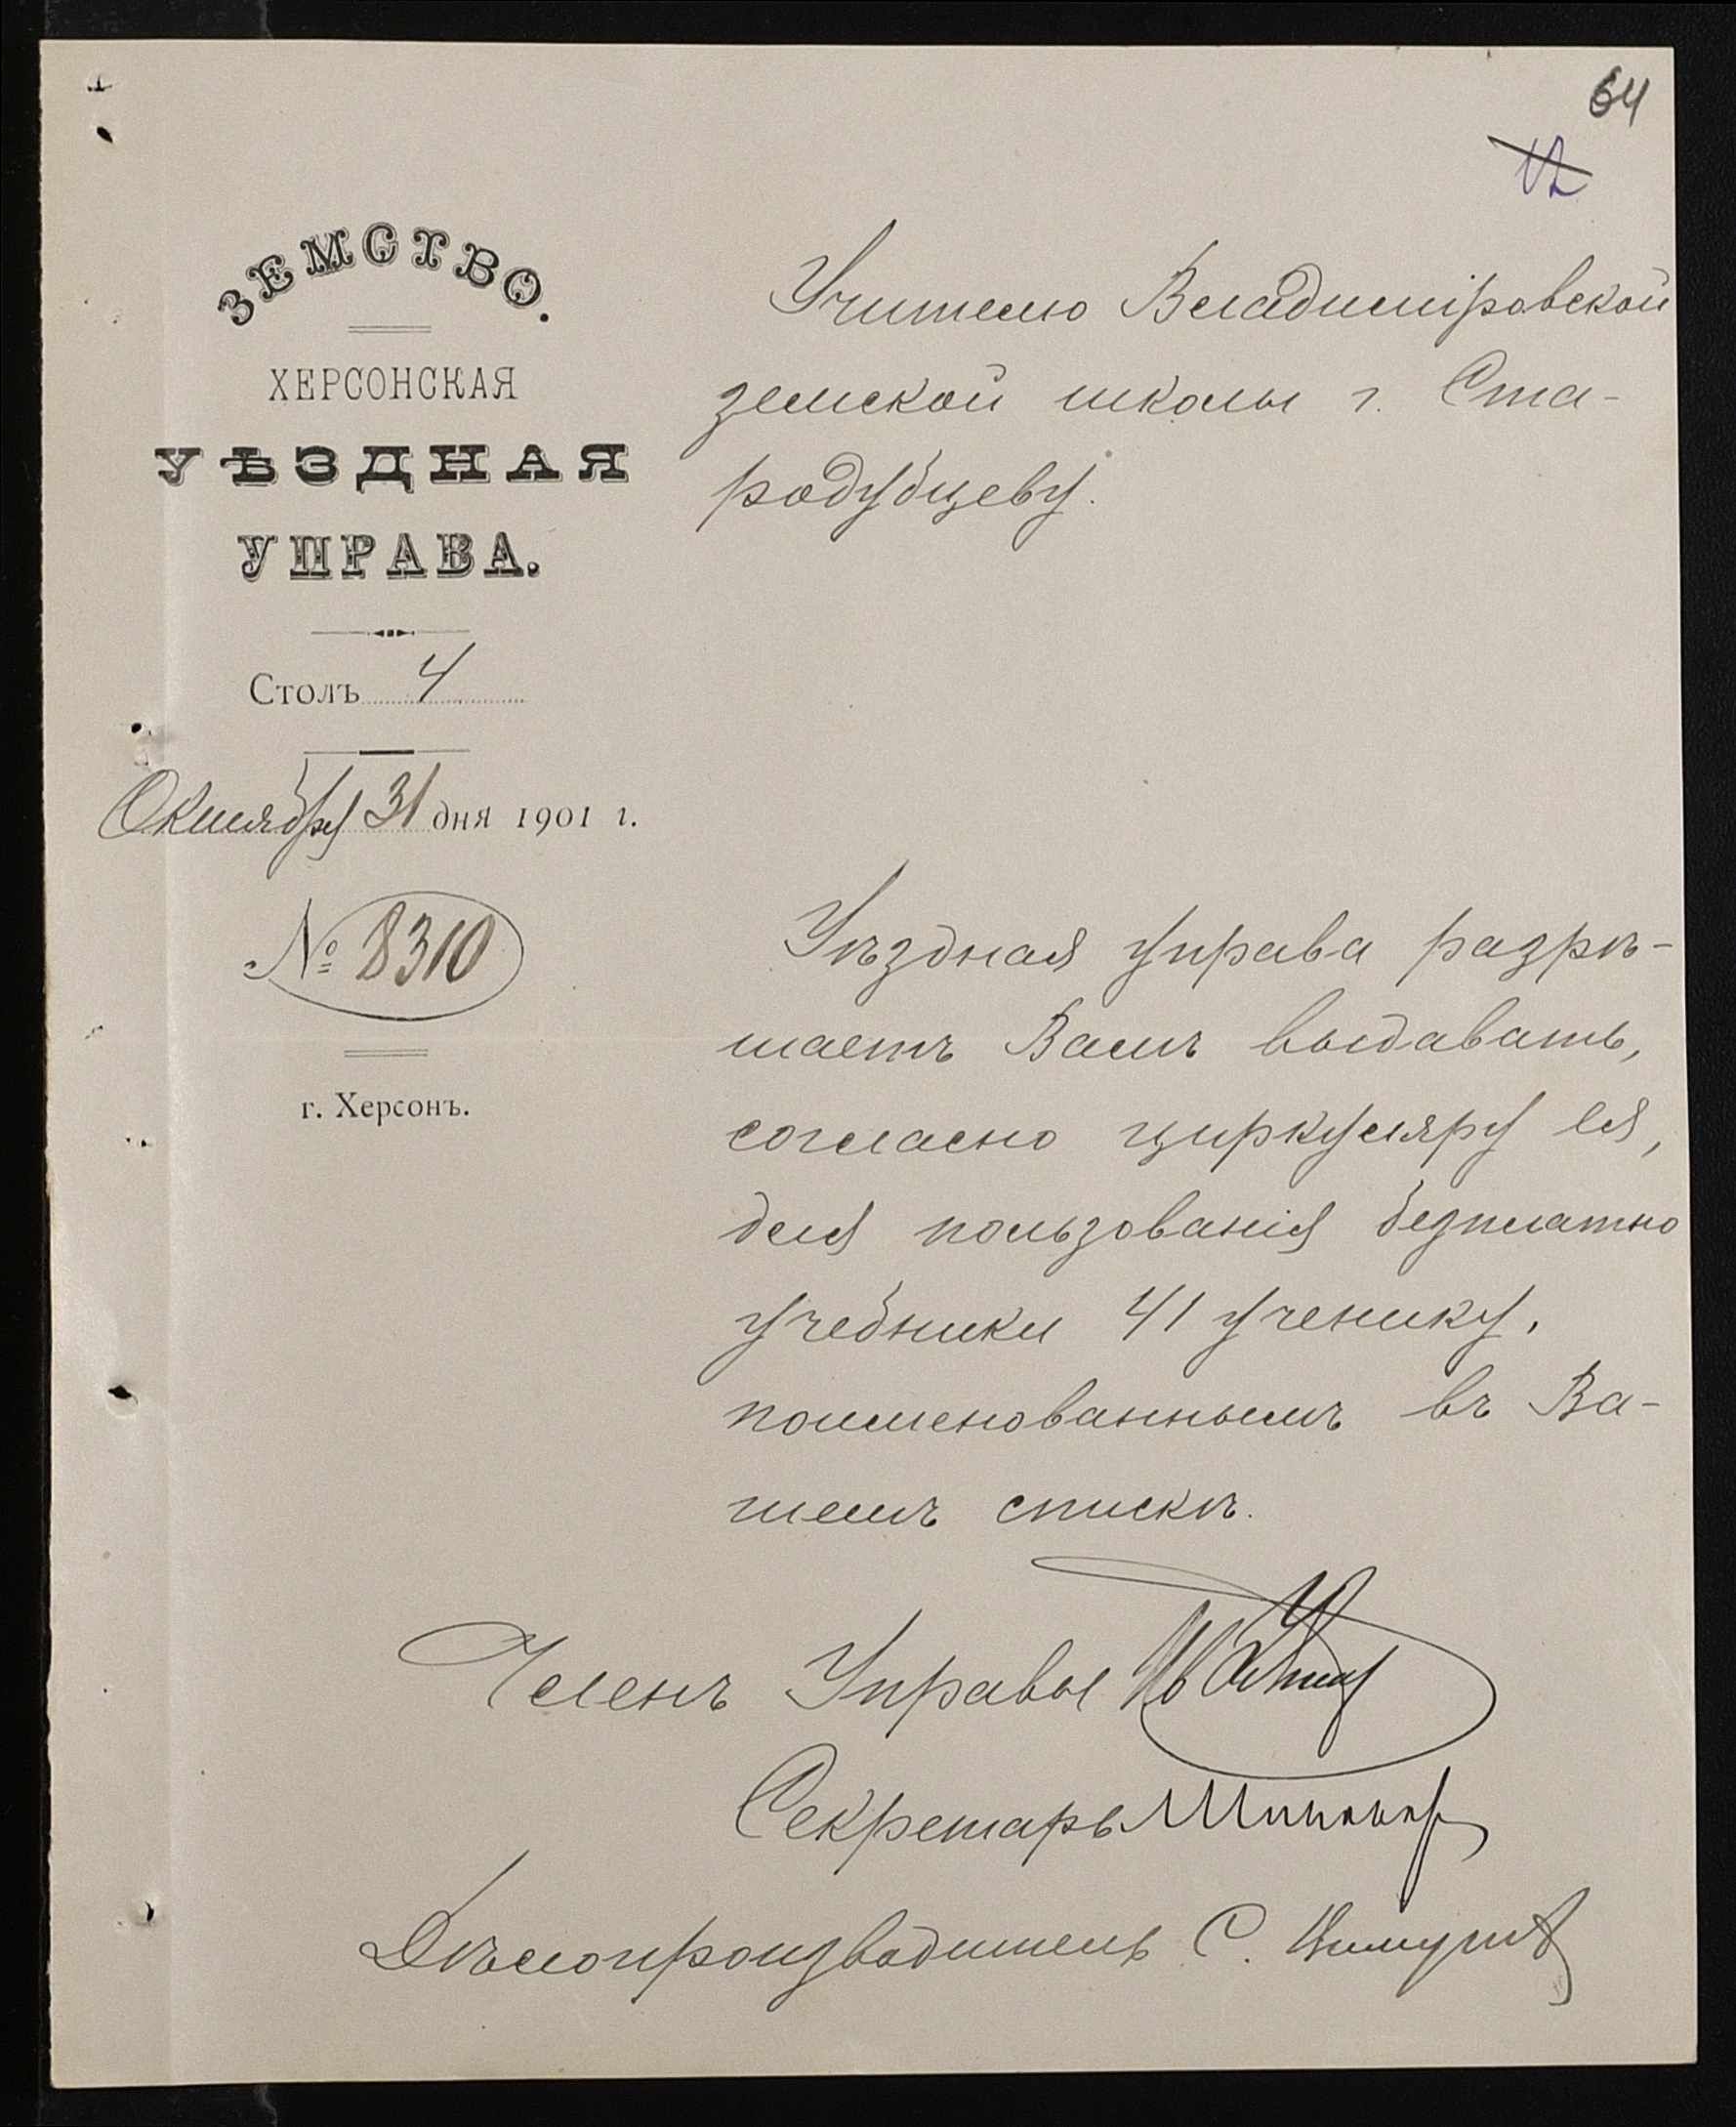 64
12
ЗЕМСТВО.
ХЕРСОНСКАЯ
УѢЗДНАЯ
УПРАВА.
Столъ 4
Октября 31 дня 1901 г.
№ 8310
г. Херсонъ.
Учителю Владимiровской
земской школы г. Ста-
родубцеву.
Уѣздная управа разрѣ-
шаетъ Вамъ выдавать,
согласно циркуляру ея,
для пользованiя безплатно
учебники 41 ученику,
поименованнымъ въ Ва-
шемъ спискѣ.
Членъ Управы
Секретарь
Дѣлопроизводитель С.